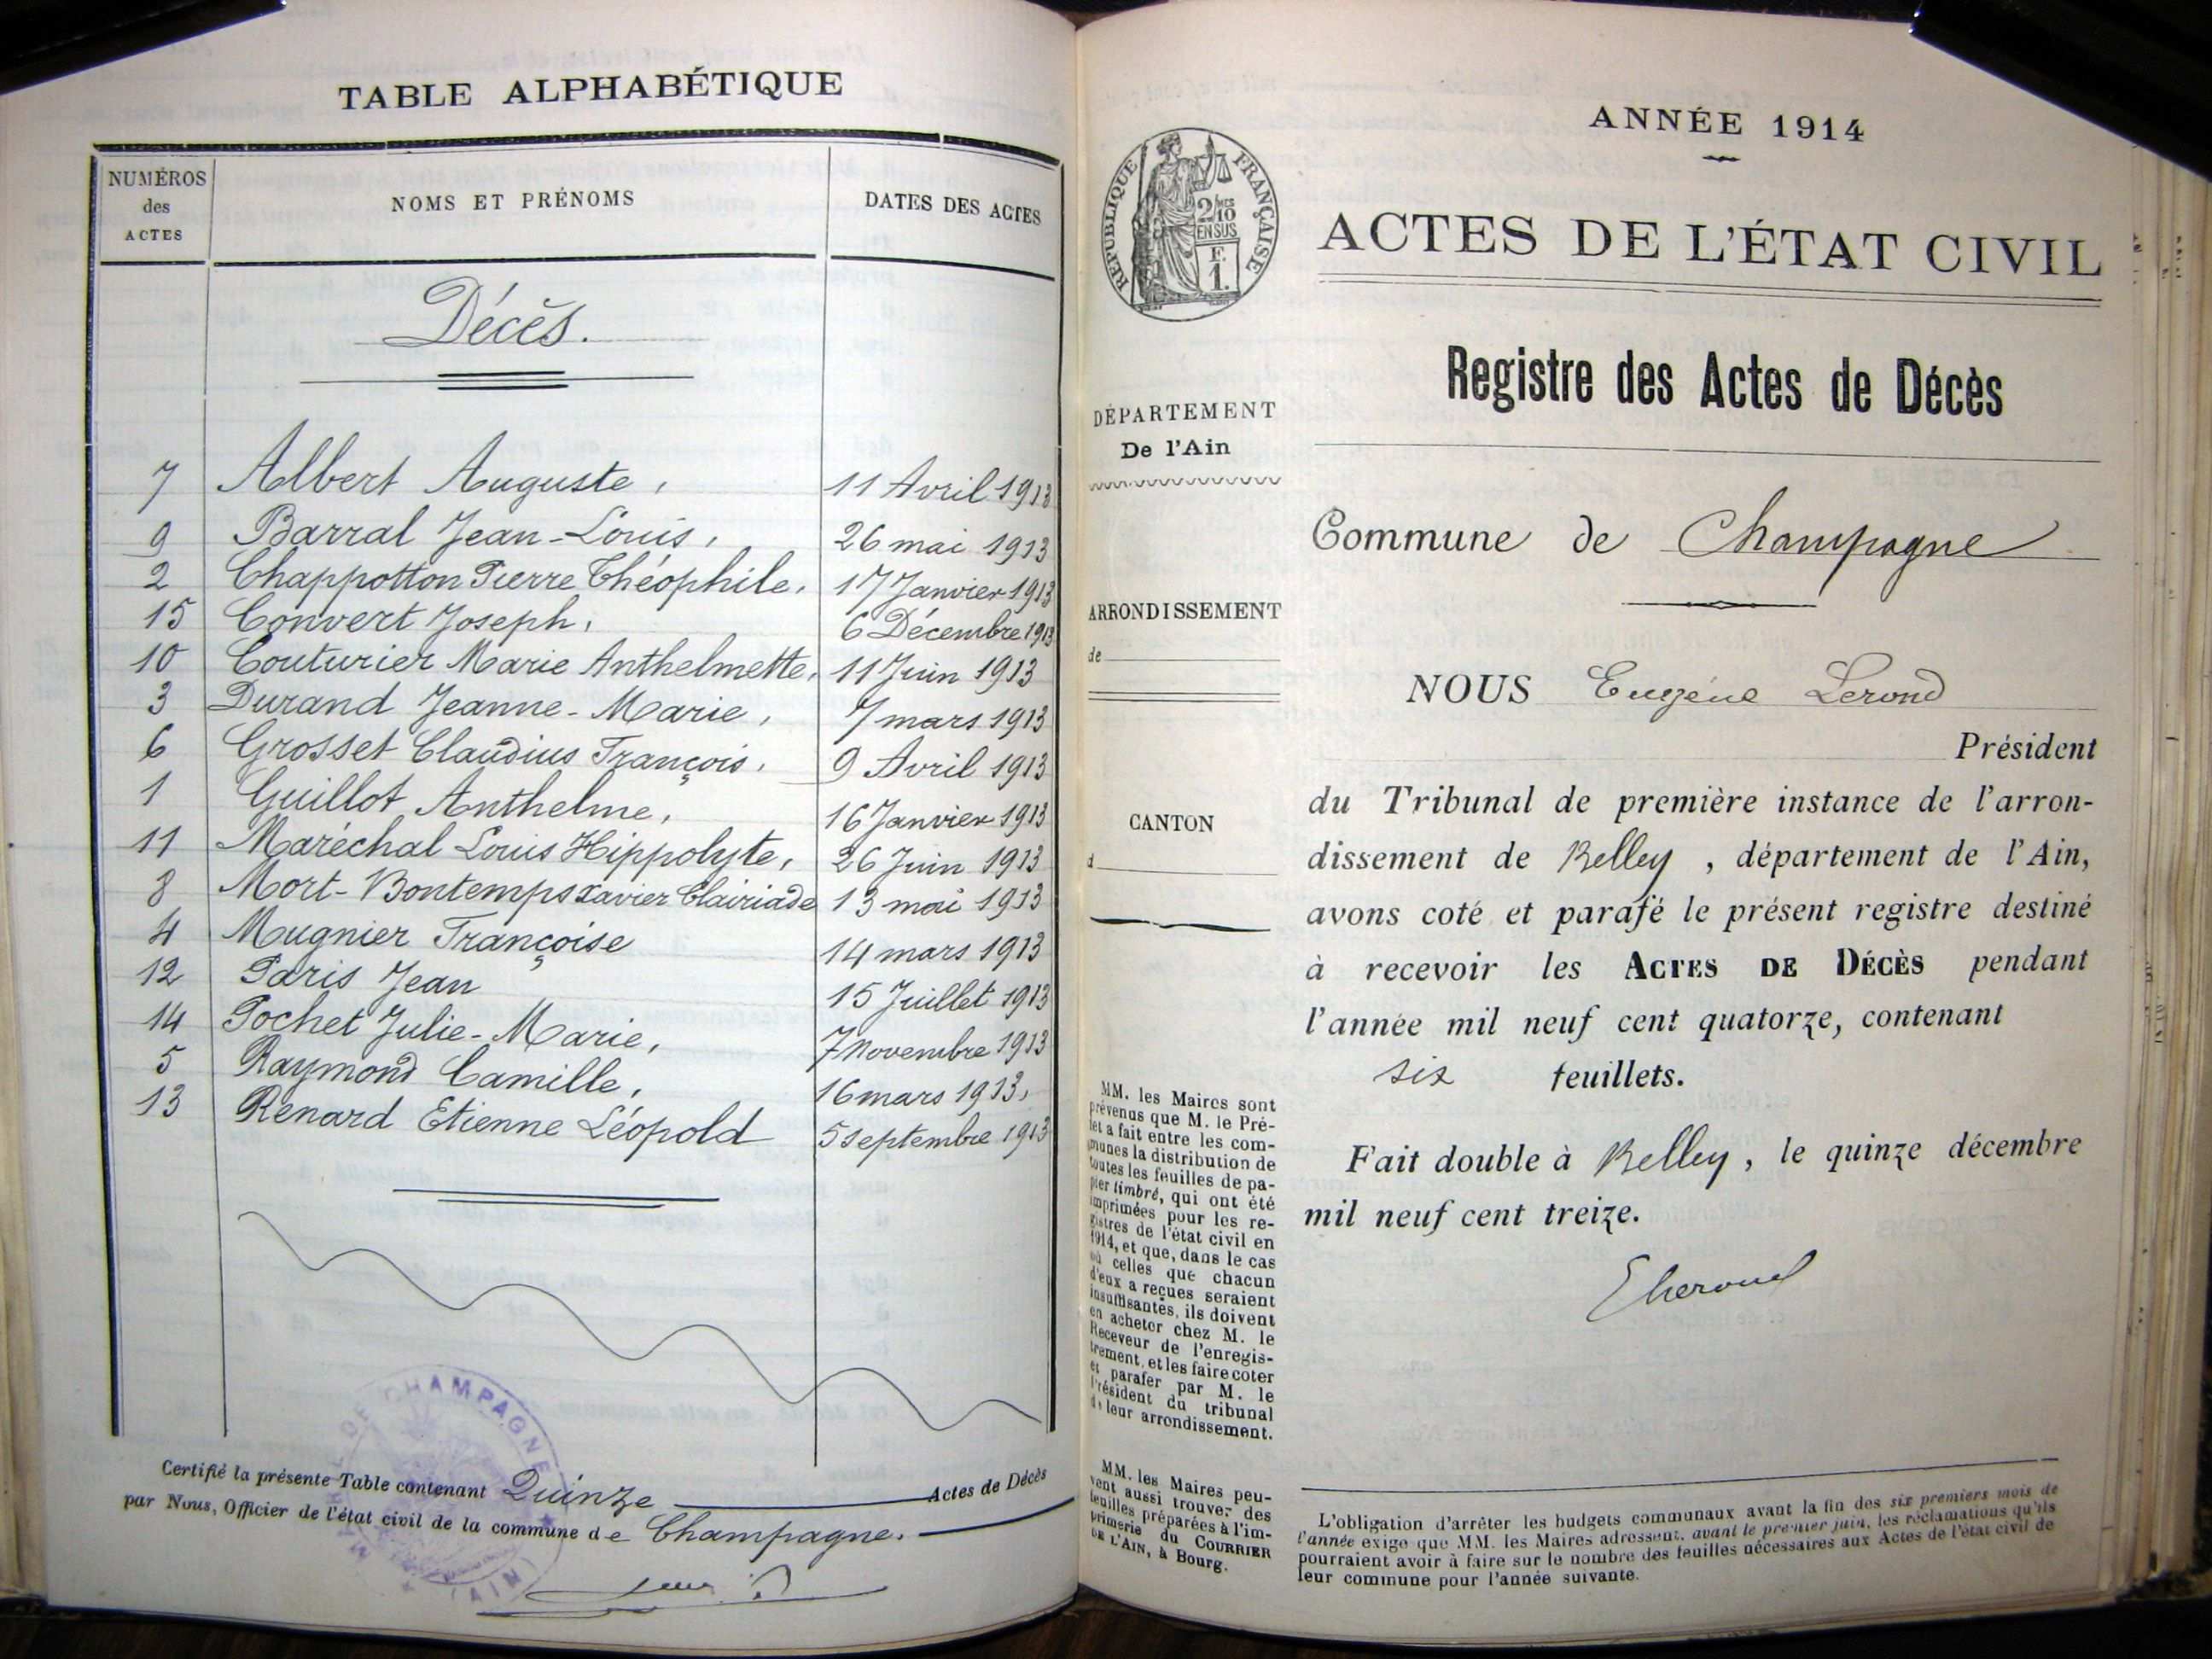 TABLE ALPHABÉTIQUE
NUMÉROS des ACTES
NOMS ET PRÉNOMS
DATES DES ACTES
Décès.
7 Albert Auguste, 11 Avril 1913
9 Barral Jean-Louis, 26 mai 1913
2 Chappotton Pierre Théophile, 17 Janvier 1913
15 Convert Joseph, 6 Décembre 1913
10 Couturier Marie Anthelmette, 11 Juin 1913
3 Durand Jeanne-Marie, 7 mars 1913
6 Grosset Claudius François, 9 Avril 1913
1 Guillot Anthelme, 16 Janvier 1913
11 Maréchal Louis Hippolyte, 26 Juin 1913
8 Mort-Bontemps Xavier Clairiade 13 mai 1913
4 Mugnier Françoise 14 mars 1913
12 Paris Jean 15 Juillet 1913
14 Pochet Julie-Marie, 7 Novembre 1913
5 Raymond Camille, 16 mars 1913,
13 Renard Etienne Léopold 5 septembre 1913
Certifié la présente Table contenant Quinze Actes de Décès
par Nous, Officier de l'état civil de la commune de Champagne.
DE CHAMPAGNE
(AIN)
ANNÉE 1914
RÉPUBLIQUE FRANÇAISE
2/10
EN SUS
F.
1.
ACTES DE L'ÉTAT CIVIL
Registre des Actes de Décès
DÉPARTEMENT
De l'Ain
ARRONDISSEMENT
de
CANTON
d
MM. les Maires sont
prévenus que M. le Pré-
fet a fait entre les com-
munes la distribution de
toutes les feuilles de pa-
pier timbré, qui ont été
imprimées pour les re-
gistres de l'état civil en
1914, et que, dans le cas
où celles que chacun
d'eux a reçues seraient
insuffisantes, ils doivent
en acheter chez M. le
Receveur de l'enregis-
trement, et les faire coter
et parafer par M. le
Président du tribunal
de leur arrondissement.
MM. les Maires peu-
vent aussi trouver des
feuilles préparées à l'im-
primerie du COURRIER
DE L'AIN, à Bourg.
Commune de Champagne
NOUS Eugène Lerond
Président
du Tribunal de première instance de l'arron-
dissement de Belley, département de l'Ain,
avons coté et parafé le présent registre destiné
à recevoir les ACTES DE DÉCÈS pendant
l'année mil neuf cent quatorze, contenant
six feuillets.
Fait double à Belley, le quinze décembre
mil neuf cent treize.
L'obligation d'arrêter les budgets communaux avant la fin des six premiers mois de
l'année exige que MM. les Maires adressent, avant le premier juin, les réclamations qu'ils
pourraient avoir à faire sur le nombre des feuilles nécessaires aux Actes de l'état civil de
leur commune pour l'année suivante.